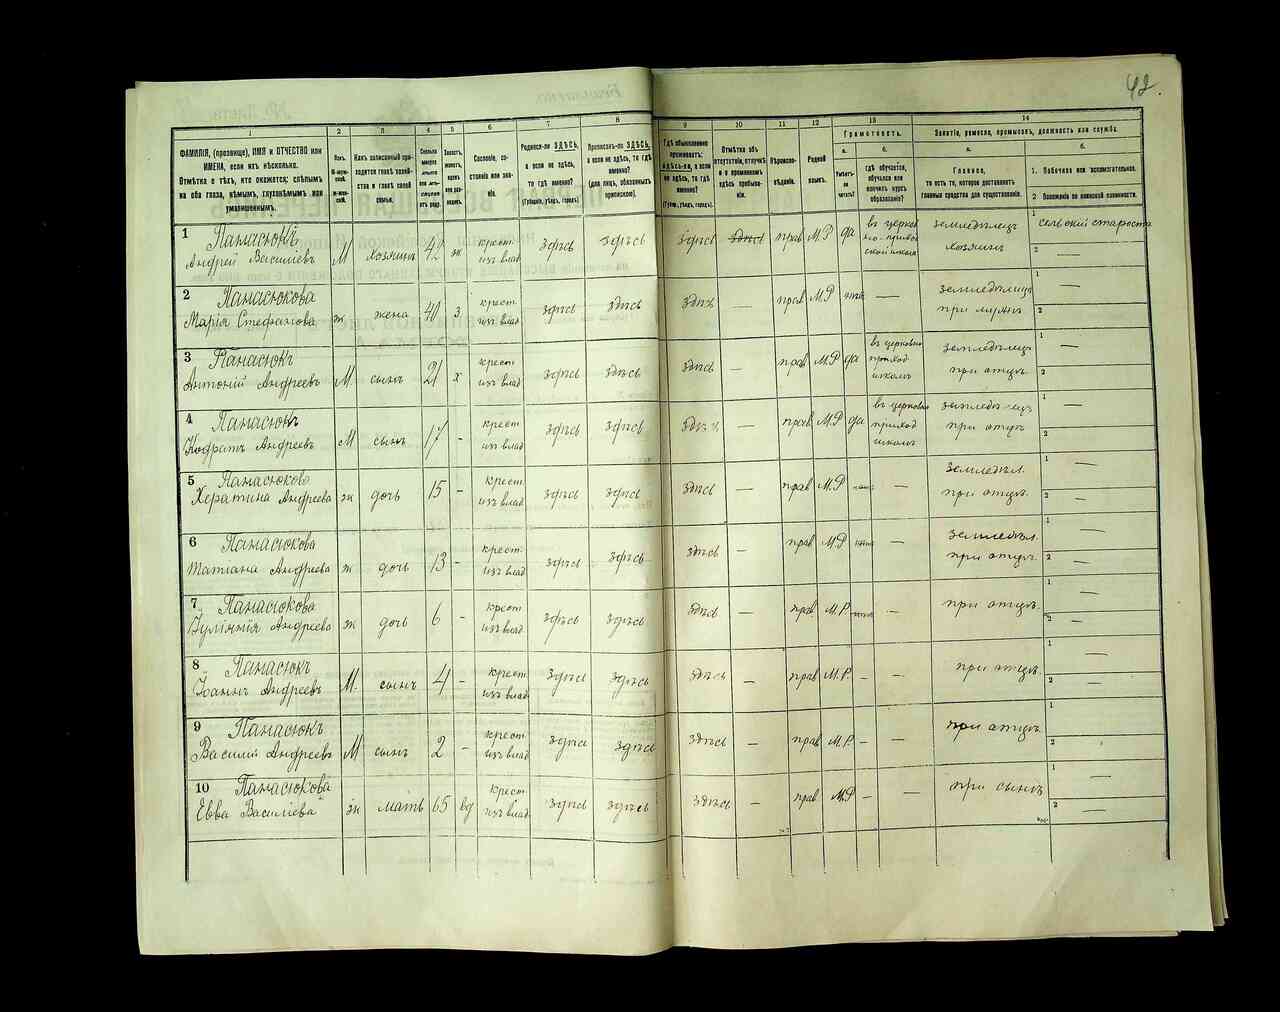 42.
1 2 3 4 5 6 7 8 9 10 11 12 13 14
ФАМИЛІЯ, (прозвище), ИМЯ и ОТЧЕСТВО или
ИМЕНА, если ихъ нѣсколько.
Отмѣтка о тѣхъ, кто окажется: слѣпымъ
на оба глаза, нѣмымъ, глухонѣмымъ или
умалишеннымъ.
Полъ.
М-мужской.
Ж-женскій.
Какъ записанный приходится главѣ хозяйства и главѣ своей семьи.
Сословіе, состояніе или званіе.
Родился-ли ЗДѢСЬ,
а если не здѣсь,
то гдѣ именно?
(Губернія, уѣздъ, городъ).
Приписанъ-ли ЗДѢСЬ,
а если не здѣсь, то гдѣ
именно?
(для лицъ, обязанныхъ
припискою).
Гдѣ обыкновенно
проживаетъ:
здѣсь-ли, а если
не здѣсь, то гдѣ
именно?
(Губерн., уѣздъ, городъ).
Отмѣтка объ
отсутствіи, отлучкѣ
и о временномъ
здѣсь пребываніи.
Вѣроисповѣданіе.
Родной
языкъ.
Грамотность.
а.
Умѣетъ-ли
читать?
б.
гдѣ обучается,
обучался или
кончилъ курсъ
образованія?
Занятіе, ремесло, промыселъ, должность или служба.
а.
Главное,
то есть то, которое доставляетъ
главныя средства для существованія.
б.
1. Побочное или вспомогательное.
2. Положеніе по воинской повинности.
1 Панасюкъ
Андрей Василіевъ М хозяинъ 42 ж крест. изъ влад здѣсь здѣсь здѣсь здѣсь прав М.Р да въ церковно-приходской школѣ земледѣлецъ хозяинъ 1 сельскій староста 2 —
2 Панасюкова
Марія Стефанова ж жена 40 з крест. изъ влад здѣсь здѣсь здѣсь — прав М.Р нѣтъ — земледѣлецъ при мужѣ 1 — 2
3 Панасюкъ
Антоній Андреевъ М сынъ 21 х крест. изъ влад здѣсь здѣсь здѣсь — прав М.Р да въ церковно приход школѣ земледѣлецъ при отцѣ 1 — 2
4 Панасюкъ
Кодратъ Андреевъ М сынъ 17 - крест изъ влад здѣсь здѣсь здѣсь — прав М.Р да въ церковно приход школѣ земледѣлецъ при отцѣ 1 — 2
5 Панасюкова
Андреева ж дочь 15 - крест. изъ влад здѣсь здѣсь здѣсь — прав М.Р нѣтъ — земледѣл. при отцѣ. 1 — 2 —
6 Панасюкова
Татіана Андреева ж дочь 13 - крест. изъ влад здѣсь здѣсь здѣсь — прав М.Р нѣтъ — земледѣл. при отцѣ. 1 — 2 —
7 Панасюкова
Андреева ж дочь 6 - крест изъ влад здѣсь здѣсь здѣсь — прав М.Р. нѣтъ — при отцѣ. 1 — 2 —
8 Панасюкъ
Іоаннъ Андреевъ М. сынъ 4 - крест. изъ влад здѣсь здѣсь здѣсь — прав М.Р. - — при отцѣ. 1 — 2 —
9 Панасюкъ
Василій Андреевъ М сынъ 2 - крест изъ влад здѣсь здѣсь здѣсь — прав М.Р. - — при отцѣ. 1 2 —
10 Панасюкова
Евва Василіева ж мать 65 вд крест изъ влад здѣсь здѣсь здѣсь — прав М.Р - — при сынѣ 1 — 2 —